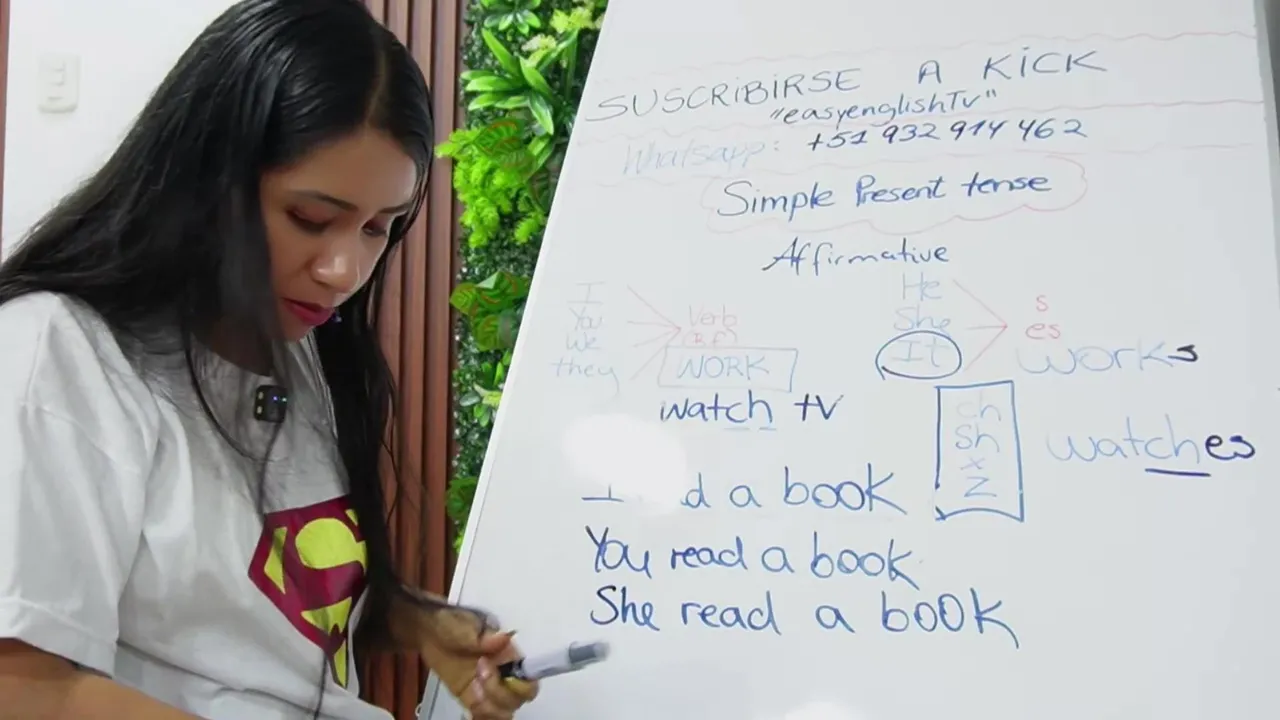 SUSCRIBIRSE A KICK
"easyenglishTv"
Whatsapp: +51 932 914 462
Simple Present tense
Affirmative
I
You
We
they
Verb
WORK
watch tv
He
She
It
s
es
works
ch
sh
x
z
watches
I d a book
You read a book
She read a book
S